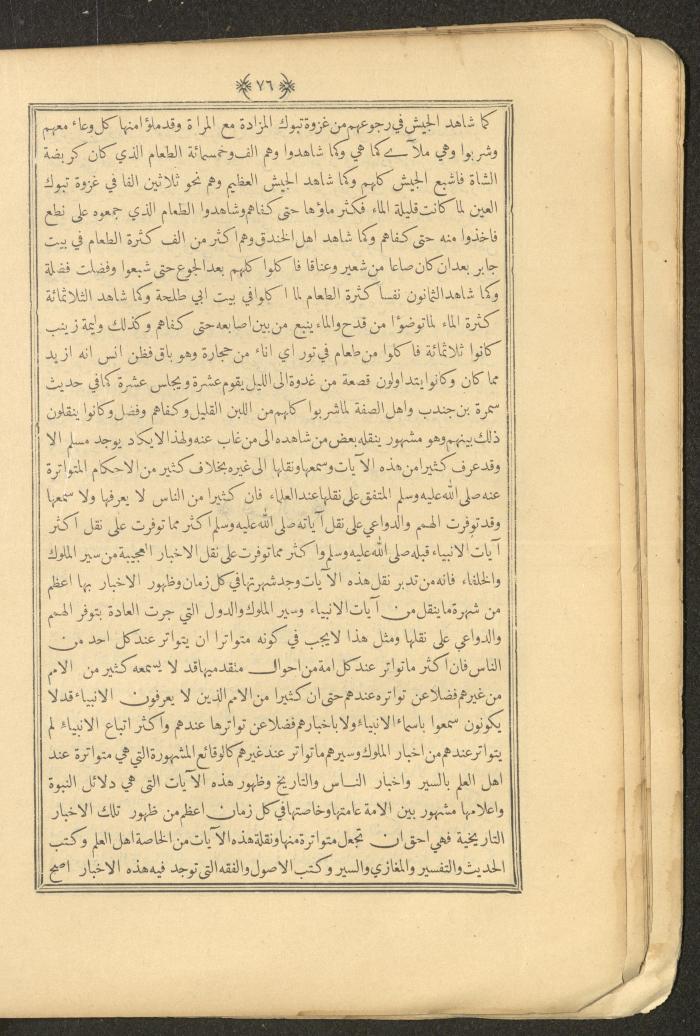 ٧٦
كما شاهد الجيش في رجوعهم من غزوة تبوك المزادة مع المراة وقد ملؤا منها كل وعاء معهم
وشربوا وهي ملآى كما هي وكما شاهدوا وهم الف وخمسمائة الطعام الذي كان كربضة
الشاة فاشبع الجيش كلهم وكما شاهد الجيش العظيم وهم نحو ثلاثين الفا في غزوة تبوك
العين لما كانت قليلة الماء فكثر ماؤها حتى كفاهم وشاهدوا الطعام الذي جمعوه على نطع
فاخذوا منه حتى كفاهم وكما شاهد اهل الخندق وهم اكثر من الف كثرة الطعام في بيت
جابر بعد ان كان صاعا من شعير وعناقا فاكلوا كلهم بعد الجوع حتى شبعوا وفضلت فضلة
وكما شاهد الثمانون نفسا كثرة الطعام لما اكلوا في بيت ابي طلحة وكما شاهد الثلاثمائة
كثرة الماء لما توضؤا من قدح والماء ينبع من بين اصابعه حتى كفاهم وكذلك وليمة زينب
كانوا ثلاثمائة فاكلوا من طعام في تور اي اناء من حجارة وهو باق فظن انس انه ازيد
مما كان وكانوا يتداولون قصعة من غدوة الى الليل يقوم عشرة ويجلس عشرة كما في حديث
سمرة بن جندب واهل الصفة لما شربوا كلهم من اللبن القليل وكفاهم وفضل وكانوا ينقلون
ذلك بينهم وهو مشهور ينقله بعض من شاهده الى من غاب عنه ولهذا لايكاد يوجد مسلم الا
وقد عرف كثيرا من هذه الآيات وسمعها ونقلها الى غيره بخلاف كثير من الاحكام المتواترة
عنه صلى الله عليه وسلم المتفق على نقلها عند العلماء فان كثيرا من الناس لا يعرفها ولا سمعها
وقد توفرت الهمم والدواعي على نقل آياته صلى الله عليه وسلم اكثر مما توفرت على نقل اكثر
آيات الانبياء قبله صلى الله عليه وسلم واكثر مما توفرت على نقل الاخبار العجيبة من سير الملوك
والخلفاء فانه من تدبر نقل هذه الآيات وجد شهرتها في كل زمان وظهور الاخبار بها اعظم
من شهرة ما ينقل من آيات الانبياء وسير الملوك والدول التي جرت العادة بتوفر الهمم
والدواعي على نقلها ومثل هذا لايجب في كونه متواترا ان يتواتر عند كل احد من
الناس فان اكثر ما تواتر عند كل امة من احوال متقدميها قد لا يسمعه كثير من الامم
من غيرهم فضلا عن تواتره عندهم حتى ان كثيرا من الامم الذين لا يعرفون الانبياء قد لا
يكونون سمعوا باسماء الانبياء ولا باخبارهم فضلا عن تواترها عندهم واكثر اتباع الانبياء لم
يتواتر عندهم من اخبار الملوك وسيرهم ما تواتر عند غيرهم كالوقائع المشهورة التي هي متواترة عند
اهل العلم بالسير واخبار الناس والتاريخ وظهور هذه الآيات التي هي دلائل النبوة
واعلامها مشهور بين الامة عامتها وخاصتها في كل زمان اعظم من ظهور تلك الاخبار
التاريخية فهي احق ان تجعل متواترة منها ونقلة هذه الآيات من الخاصة اهل العلم وكتب
الحديث والتفسير والمغازي والسير وكتب الاصول والفقه التي توجد فيه هذه الاخبار اصح